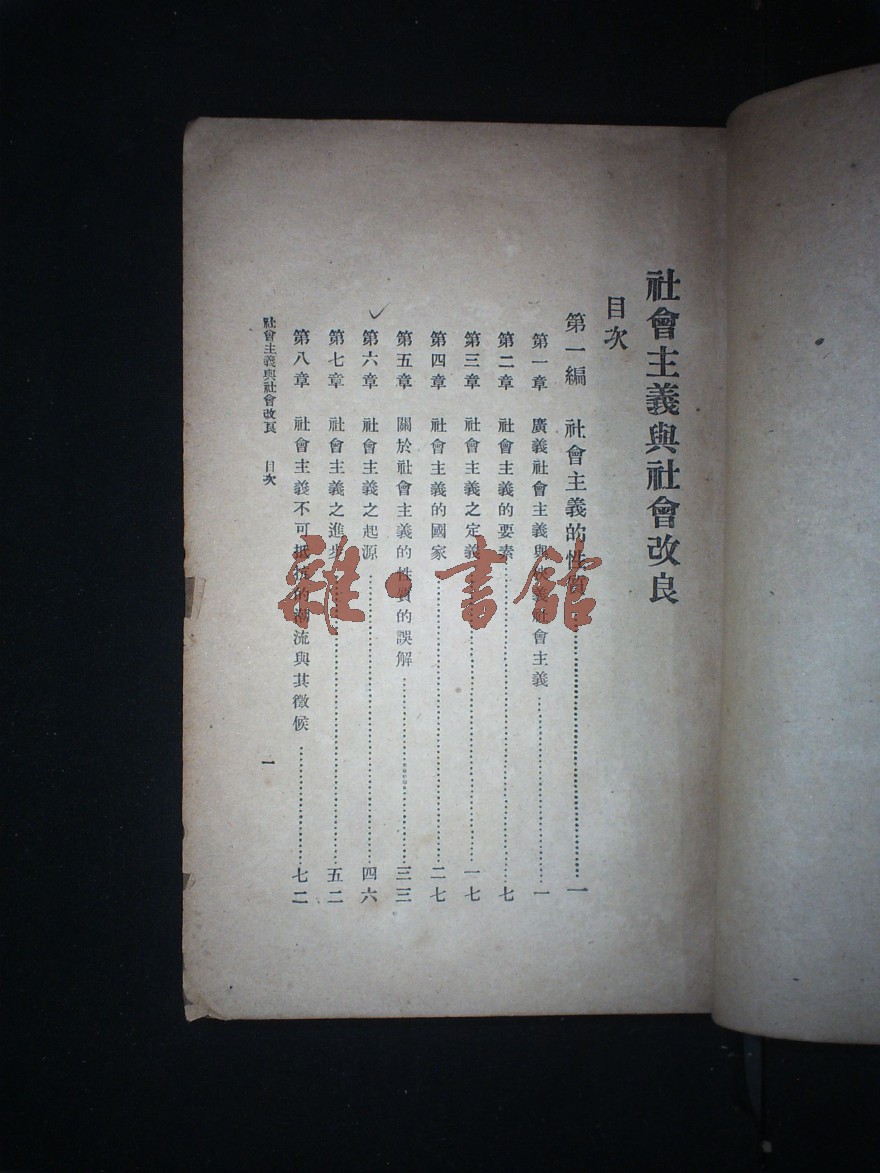 社會主義與社會改良
目次
第一編 社會主義的性質……一
第一章 廣義社會主義與狹義社會主義……一
第二章 社會主義的要素……七
第三章 社會主義之定義……一七
第四章 社會主義的國家……二七
第五章 關於社會主義的性質的誤解……三三
第六章 社會主義之起源……四六
第七章 社會主義之進步……五二
第八章 社會主義不可抵抗的潮流與其徵候……七二
社會主義與社會改良 目次 一
雜·書館